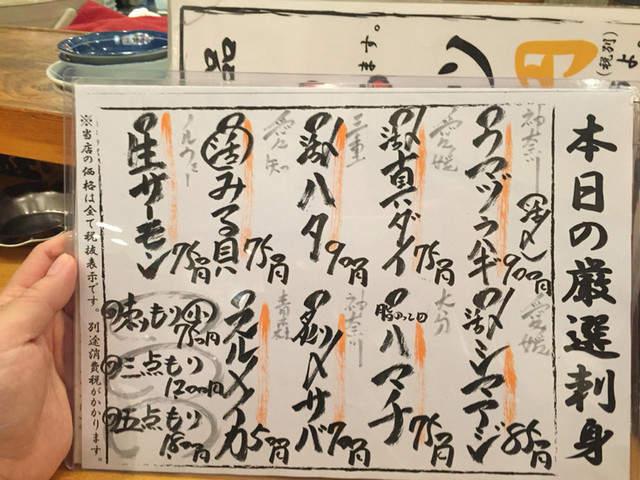 本日の厳選刺身
神奈川
ウマヅラハギ
活〆
900円
愛媛
活〆シマアジ
850円
愛媛
活〆真ダイ
750円
大分
脂のってる
ハマチ
750円
三重
活〆ハタ
900円
神奈川
炙り〆サバ
700円
愛知
活みる貝
750円
青森
スルメイカ
500円
ノルウェー
生サーモン
750円
刺しもり 小
750円
三点もり
1200円
五点もり
1800円
※当店の価格は全て税抜表示です。別途消費税がかかります。